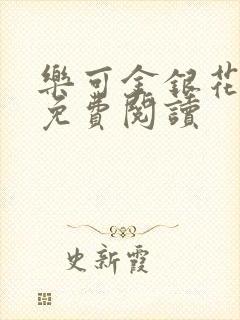 樂可金銀花
免費閱讀
史新霞